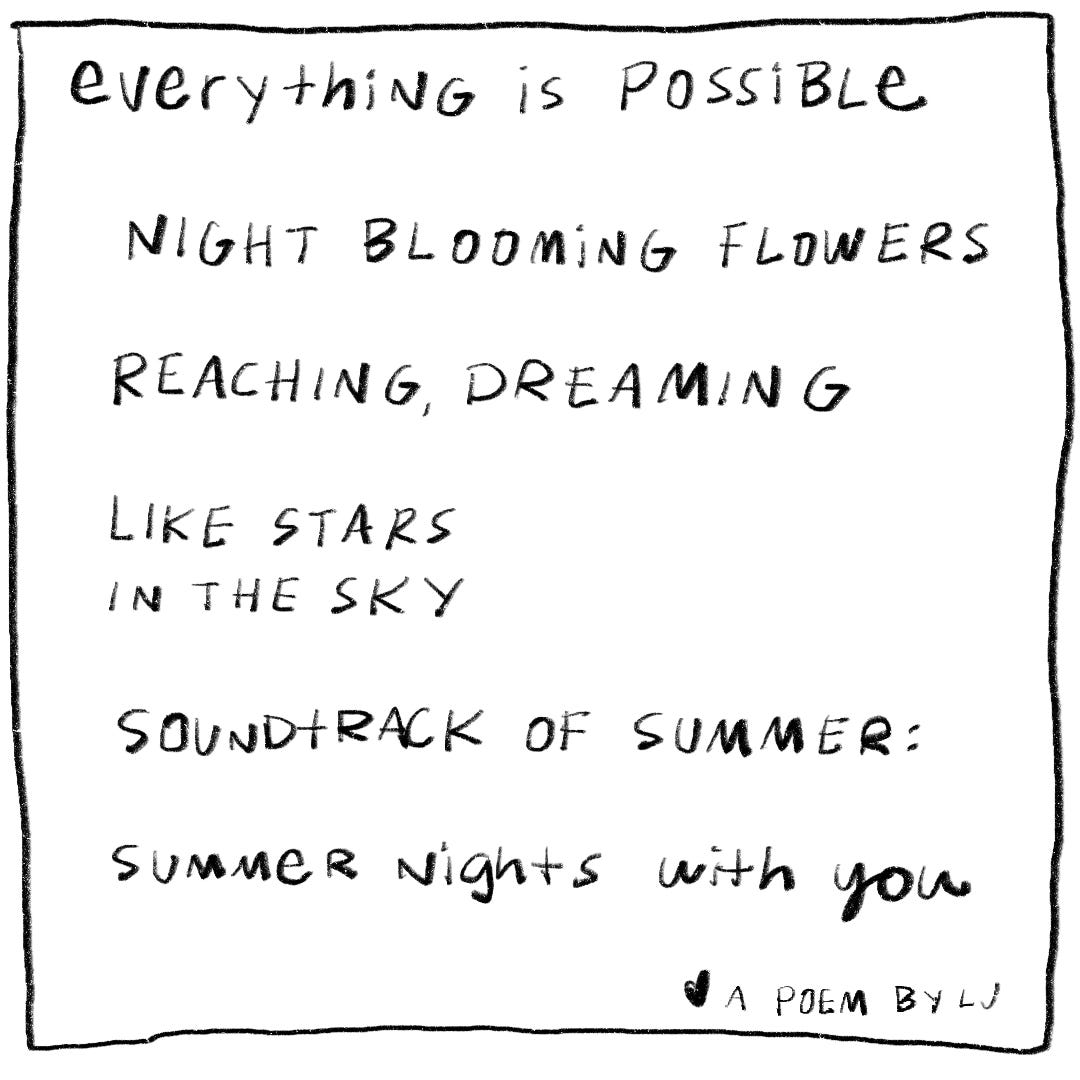 everythiNG is POSSiBLe
NIGHT BLOOMiNG FLOWERS
REACHING, DREAMING
LIKE STARS
IN THE SKY
SOUNDtRACK OF SUMMER:
SUMMeR Nights with you
A POEM BY LJ